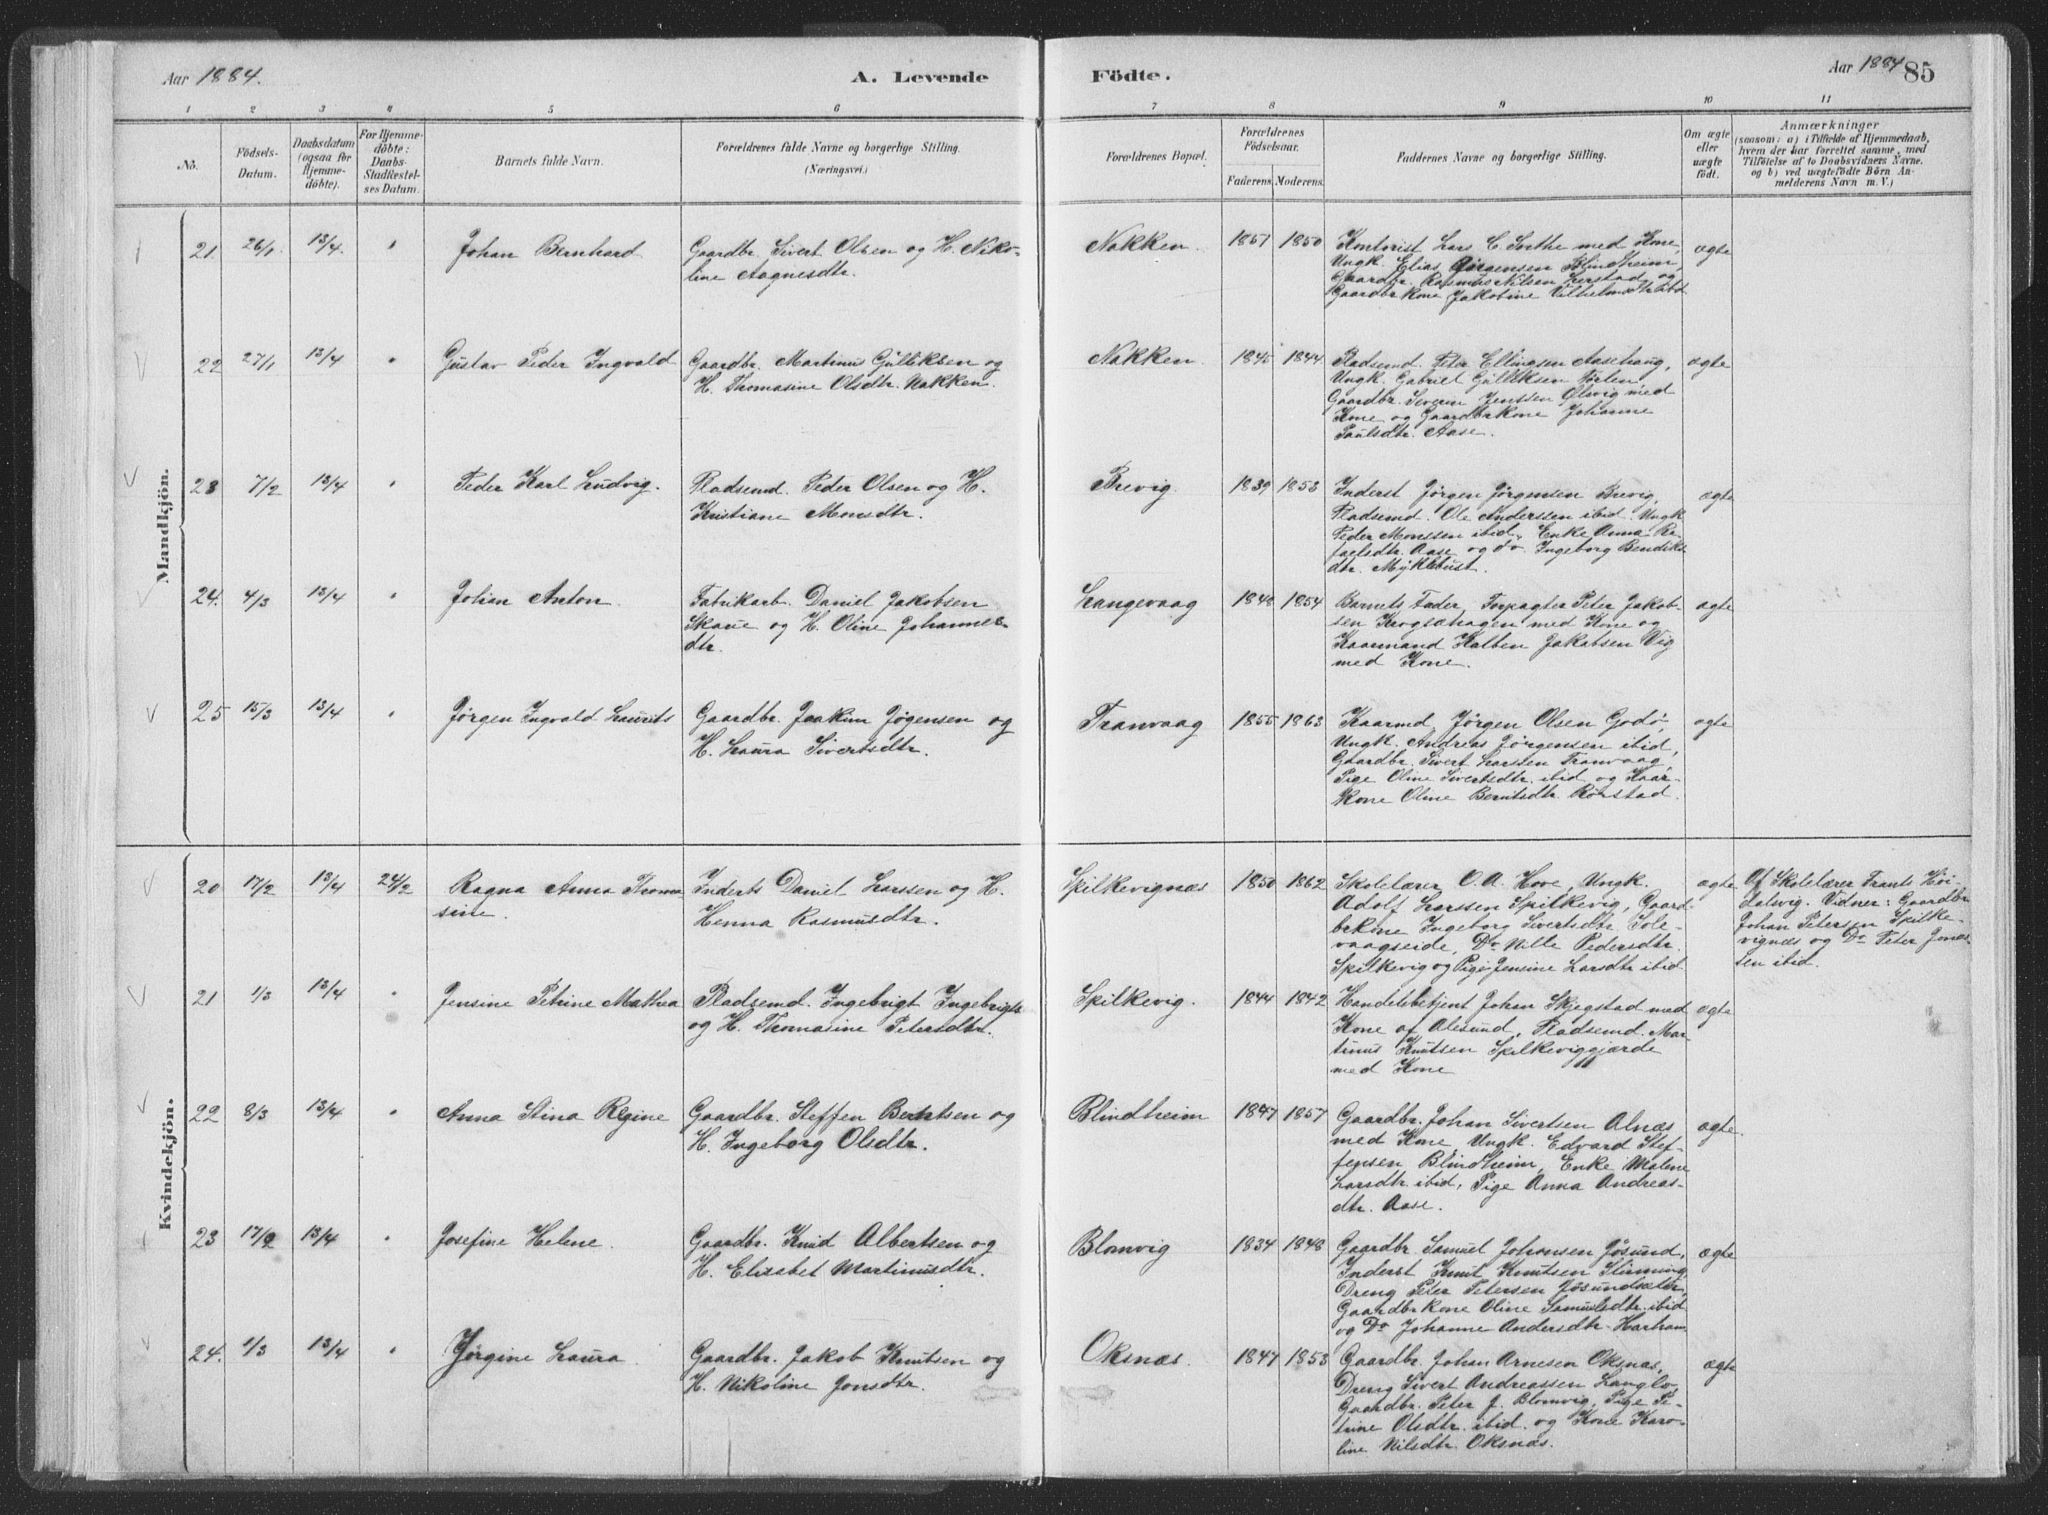 Aar 1884.
A. Levende
Födte.
Aar 1884
85
1 2 3 4 5 6 7 8 9 10 11
No.
Födsels-
Datum.
Daabsdatum
(ogsaa for
Hjemme-
döbte).
For Hjemme-
döbte:
Daabs-
Stadfæstel-
ses Datum.
Barnets fulde Navn.
Forældrenes fulde Navne og borgerlige Stilling.
(Næringsvei.)
Forældrenes Bopæl.
Forældrenes
Födselsaar.
Faderens. Moderens.
Faddernes Navne og borgerlige Stilling.
Om ægte
eller
uægte
födt.
Anmærkninger
(saasom: a) i Tilfælde af Hjemmedaab,
hvem der har forrettet samme, med
Tilföielse af to Daabsvidners Navne.
og b) ved uægtefödte Börn An-
melderens Navn m. V.)
Mandkjön.
21. 26/1. 13/4. "
Johan Bernhard
Gaardbr. Sivert Olsen og H. Niko-
line Aagnesdtr.
Nakken.
1851 1850
Kontorist Lars C. Sothe med Kone,
Ungk. Elias Jørgensen Blindheim,
Gaardbr. Rasmus Nilsen Lerstad og
Gaardbrkone Jakobine Vilhelmsdtr ibd
ægte
22 27/1 13/4 "
Gustav Peder Ingvald
Gaardbr. Martinus Gulliksen og
H. Thomasine Olsdtr. Nakken.
Nakken.
1845 1844
Pladsemd. Peter Ellingsen Aasehaug,
Ungk. Gabriel Gulliksen
Gaardbr. Severin Jenssen Olsvig med
Kone og Gaardbrkone Johanne
Paulsdtr. Aase.
ægte
23 7/2 13/4 "
Peder Karl Ludvig.
Pladsemd. Peder Olsen og H.
Kristiane Monsdtr.
Brevig.
1839 1853
Inderst Jørgen Jørgensen Brevig,
Pladsemd. Ole Anderssen ibid. Ungk
Peder Monssen ibid, Enke Anna Ra-
faelsdtr. Aase og do. Ingeborg Bendiks
dtr. Myklebust.
ægte
24. 4/3 13/4 "
Johan Anton
Fabrikarb. Daniel Jakobsen
Skaue og H. Oline Johannes-
dtr.
Langevaag
1848 1854
Barnets Fader, Forpagter Peter Jakob-
sen med Kone og
Kaarmand Kalben Jakobsen Vig
med Kone.
ægte
25 15/3 13/4 "
Jørgen Ingvald Laurits
Gaardbr. Joakim Jøgensen og
H. Laura Sivertsdtr.
Tranvaag
1855 1863
Kaarmd Jørgen Olsen Godø,
Ungk. Andreas Jørgensen ibid,
Gaardbr. Sivert Larssen Tranvaag,
Pige Oline Sivertsdtr. ibid og Kaar-
kone Oline Berntsdtr. Rørstad.
ægte
Kvindekjön.
20 17/2 13/4 24/2
Ragna Anna Thoma
sine.
Inderts Daniel Larssen og H.
Henna Rasmusdtr.
Spilkevignæs
1850 1862
Skolelærer O. A. Hove, Ungk.
Adolf Larssen Spilkevig, Gaard-
brkone Ingeborg Sivertsdtr Sole-
vaagseide, Do Nille Pedersdtr.
Spilkevig og Pige Jensine Larsdtr ibid.
ægte
Af Skolelærer Frants Höi-
dalsvig. Vidner: Gaardbr
Johan Petersen Spilke-
vignæs og Do Peter Jonas-
sen ibid.
21 1/3 13/4 "
Jensine Petrine Mathea
Pladsemd. Ingebrigt Ingebrigts
og H. Thomasine Petersdtr.
Spilkevig.
1844 1842
Handelsbetjent Johan Skjegstad med
Kone af Alesund, Pladsemd. Mar-
tinus Knutsen Spilkeviggjærde
med Kone
ægte
22 8/3 13/4 "
Anna Stina Regine
Gaardbr. Steffen Berntsen og
H. Ingeborg Olsdtr.
Blindheim
1847 1857
Gaardbr. Johan Sivertsen Alnæs
med Kone, Ungk. Edvard Stef-
fensen Blindheim, Enke Malene
Larsdtr ibid, Pige Anna Andreas-
dtr. Aase.
ægte.
23 17/2 13/4 "
Josefine Helene.
Gaardbr. Knud Albertsen og
H. Elisabet Martinusdtr.
Blomvig
1834 1848
Gaardbr. Samuel Johansen Jøsund,
Inderst Knut Knutsen
Dreng Peter Petersen Jøsundsæter,
Gaardbrkone Oline Samuelsdtr. ibid
og Do Johanne Andersdtr. Harham
ægte
24. 1/3 13/4 "
Jørgine Laura.
Gaardbr. Jakob Knutsen og
H. Nikoline Jonsdtr.
Oksnæs.
1847 1853
Gaardbr. Johan Arnesen Oksnæs,
Dreng Sivert Andreassen Langlo,
Gaardbr. Peter J. Blomvig, Pige Pe-
trine Olsdtr. ibid. og Kone Karo-
line Nilsdtr. Oksnæs.
ægte